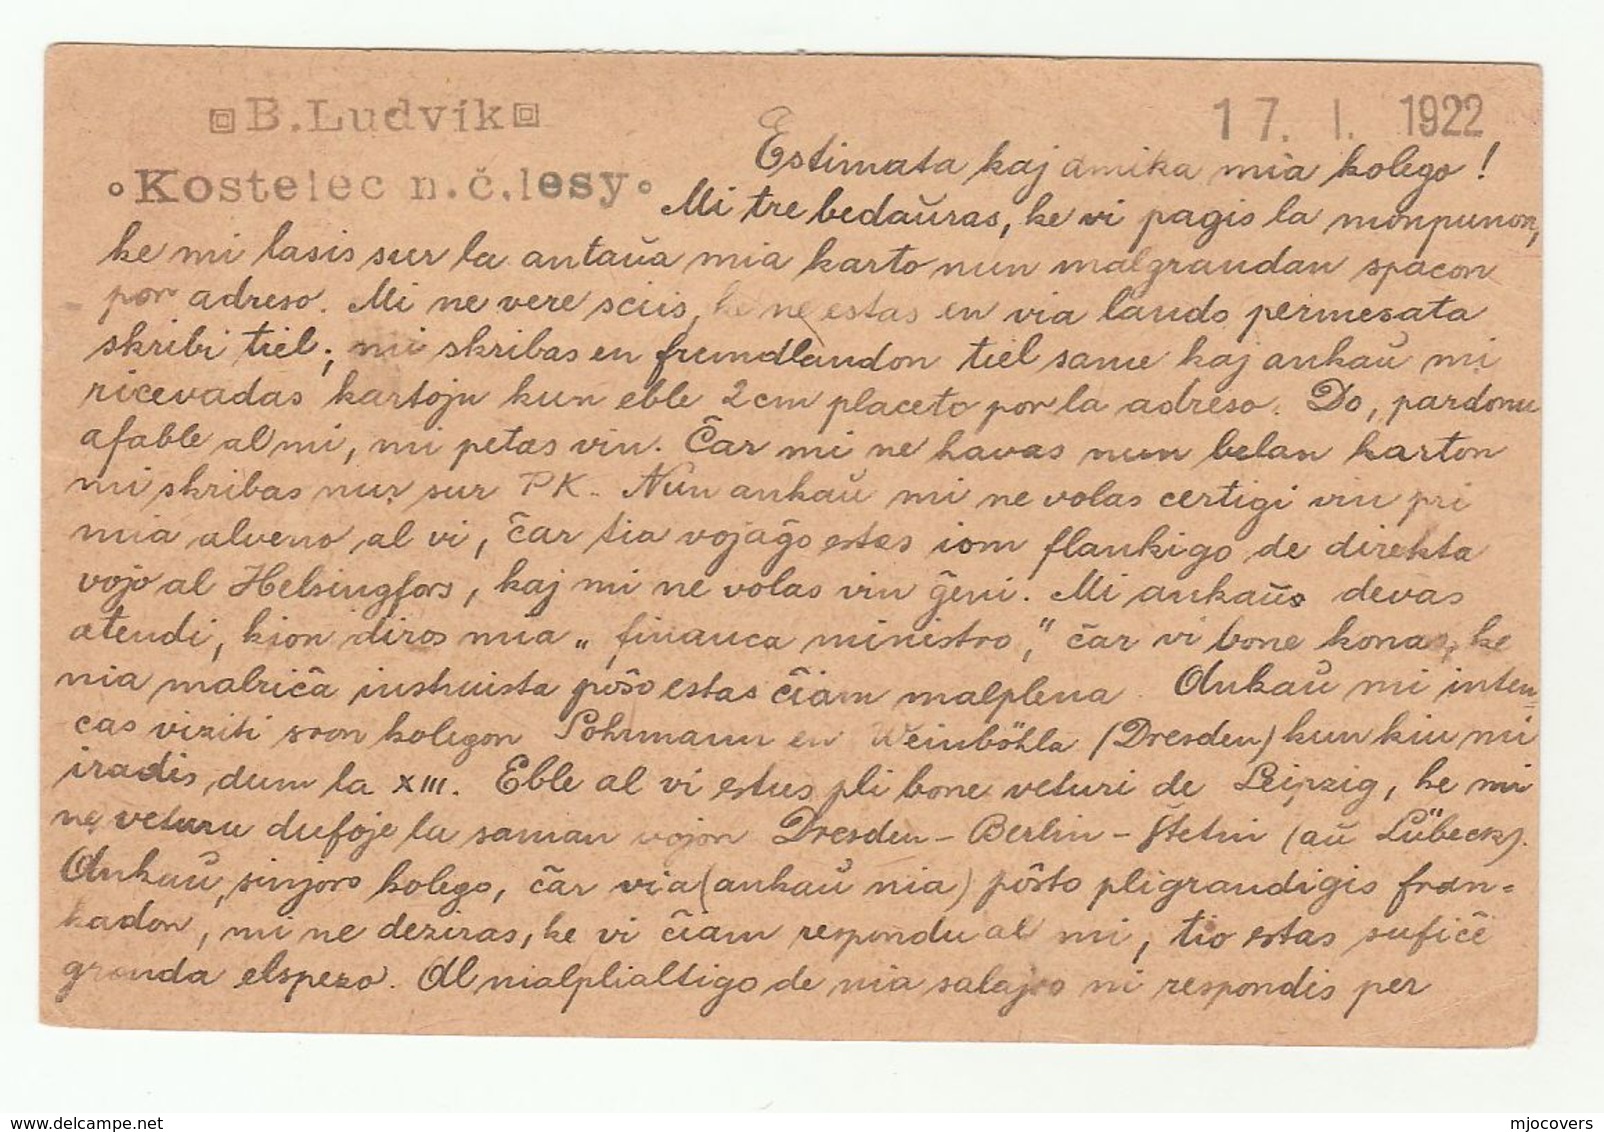 B. Ludvík
17. I. 1922
Kostelec n.č.lesy
Estimata kaj amika mia kolego!
Mi tre bedaŭras, ke vi pagis la monpunon,
ke mi lasis sur la antaŭa mia karto nun malgrandan spacon
por adreso. Mi ne vere sciis, ke ne estas en via lando permesata
skribi tiel; mi skribas en fremdlandon tiel same kaj ankaŭ mi
ricevadas kartojn kun eble 2cm placeto por la adreso. Do, pardonu
afable al mi, mi petas vin. Ĉar mi ne havas nun belan karton
mi skribas nur sur PK. Nun ankaŭ mi ne volas certigi vin pri
mia alveno al vi, ĉar tia vojaĝo estas iom flankigo de direkta
vojo al Helsingfors, kaj mi ne volas vin ĝeni. Mi ankaŭ devas
atendi, kion diros mia „financa ministro,“ ĉar vi bone konas, ke
nia malriĉa instruista poŝo estas ĉiam malplena. Ankaŭ mi inten=
cas viziti sron kolegon Lohrmann en Weinböhla (Dresden) kun kiu mi
iradis dum la XIII. Eble al vi estus pli bone veturi de Leipzig, ke mi
ne veturu dufoje la saman vojon Dresden - Berlin - Štetin (aŭ Lübeck).
Ankaŭ, sinjoro kolego, ĉar via (ankaŭ nia) poŝto pligrandigis fran=
kadon, mi ne deziras, ke vi ĉiam respondu al mi, tio estas sufiĉe
granda elspezo. Al nialplialtigo de nia salajro ni respondis per
delcampe.net
mjocovers